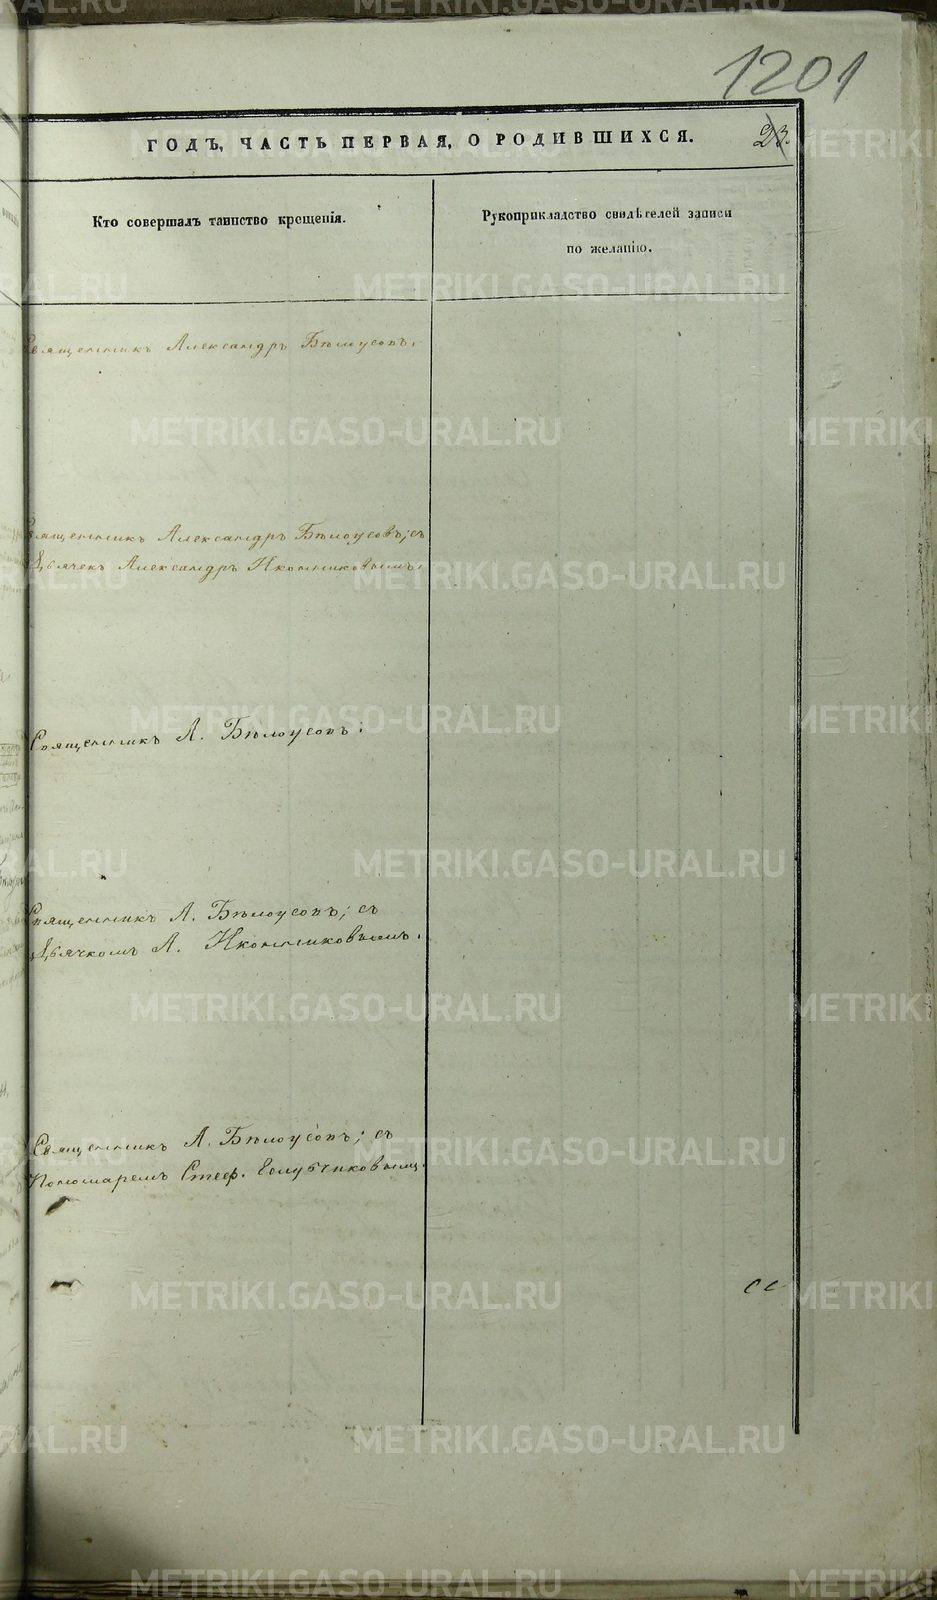 1201
ГОДЪ, ЧАСТЬ ПЕРВАЯ, О РОДИВШИХСЯ.
23.
Кто совершалъ таинство крещенія.
Рукоприкладство свидѣтелей записи
по желанію.
Священникъ Александръ Бѣлоусовъ.
Священникъ Александръ Бѣлоусовъ; съ
Дьячек Александръ Иконниковымъ.
Священникъ А. Бѣлоусовъ.
Священникъ А. Бѣлоусовъ; съ
Дьячкомъ А. Иконниковымъ.
Священникъ А. Бѣлоусовъ; съ
Пономаремъ Стеф. Голубчиковымъ.
METRIKI.GASO-URAL.RU